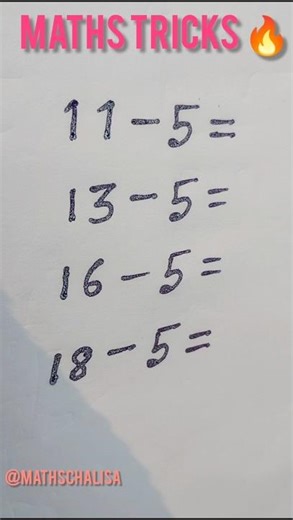 MATHS TRICKS🔥
11-5=
13-5=
16-5=
18-5=
@MATHSCHALISA